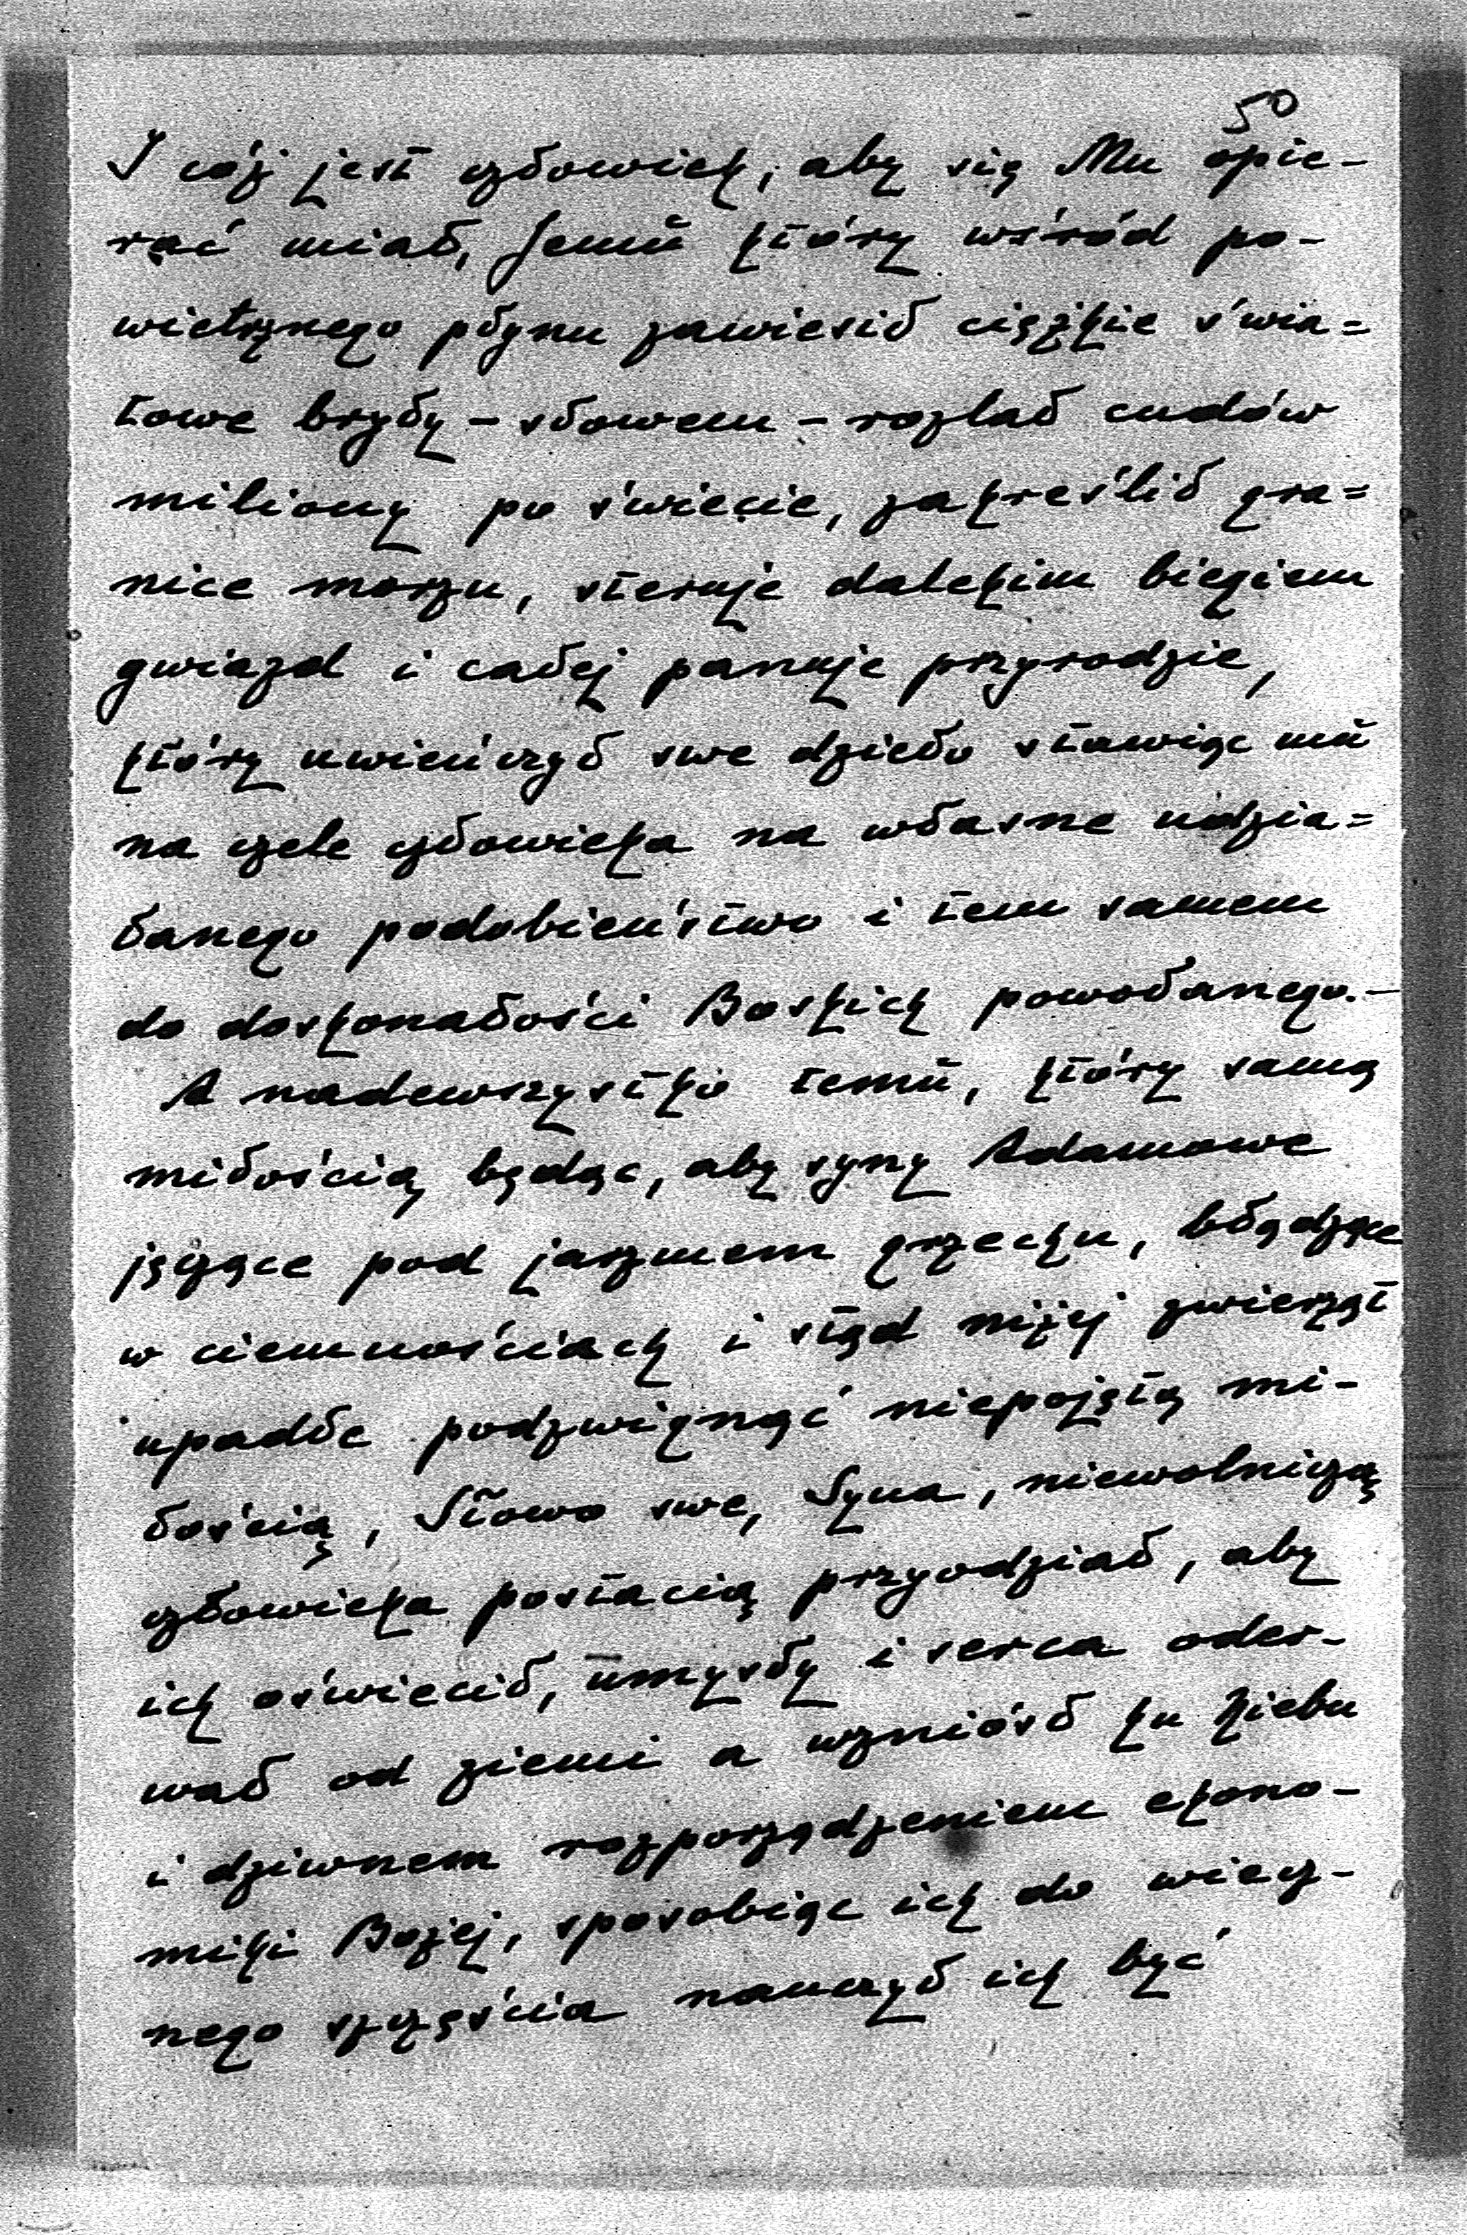 50
I cóż jest człowiek, aby się Mu opie-
rać miał, Jemu który wśród po-
wietrznego płynu zawiesił ciężkie świa=
towe bryły - słowem - rozlał cudów
miliony po świecie, zakreślił gra=
nice morzu, steruje dalekim biegiem
gwiazd i całej panuje przyrodzie,
który uwieńczył swe dzieło stawiąc mu
na czele człowieka na własne udzia=
łanego podobieństwo i tem samem
do doskonałości Boskich powołanego.-
A nadewszystko temu, który samą
miłością będąc, aby syny Adamowe
jęczące pod jarzmem grzechu, błądzące
w ciemnościach i stąd niżej zwierząt
upadłe podzwignąć niepojętą mi-
łością, Słowo swe, Syna, niewolniczą
człowieka postacią przyodział, aby
ich oświecił, umysły i serca oder-
wał od ziemi a wzniósł ku Niebu
i dziwnem rozporządzeniem ekono-
miki Bożej, sposobiąc ich do wiecz-
nego szczęścia nauczył ich być